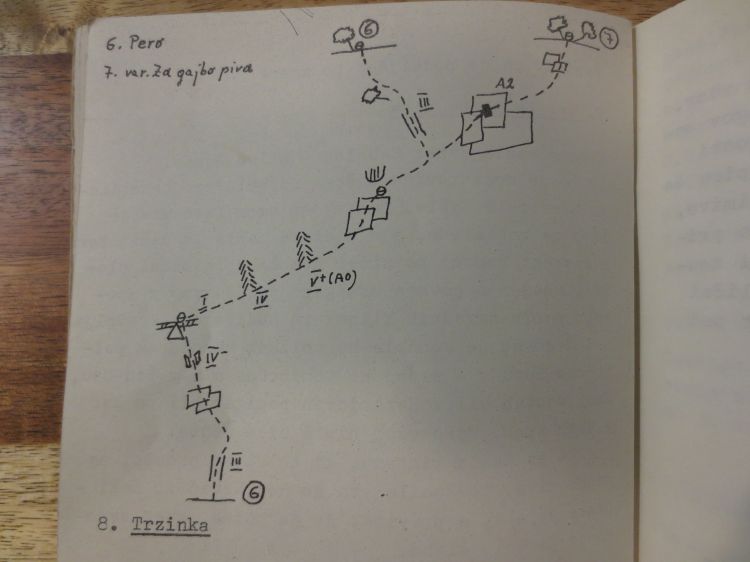 6. Pero
7. var. Za gajbo piva
6
7
A2
III
V+(A0)
IV
I
IV-
III
6
8. Trzinka